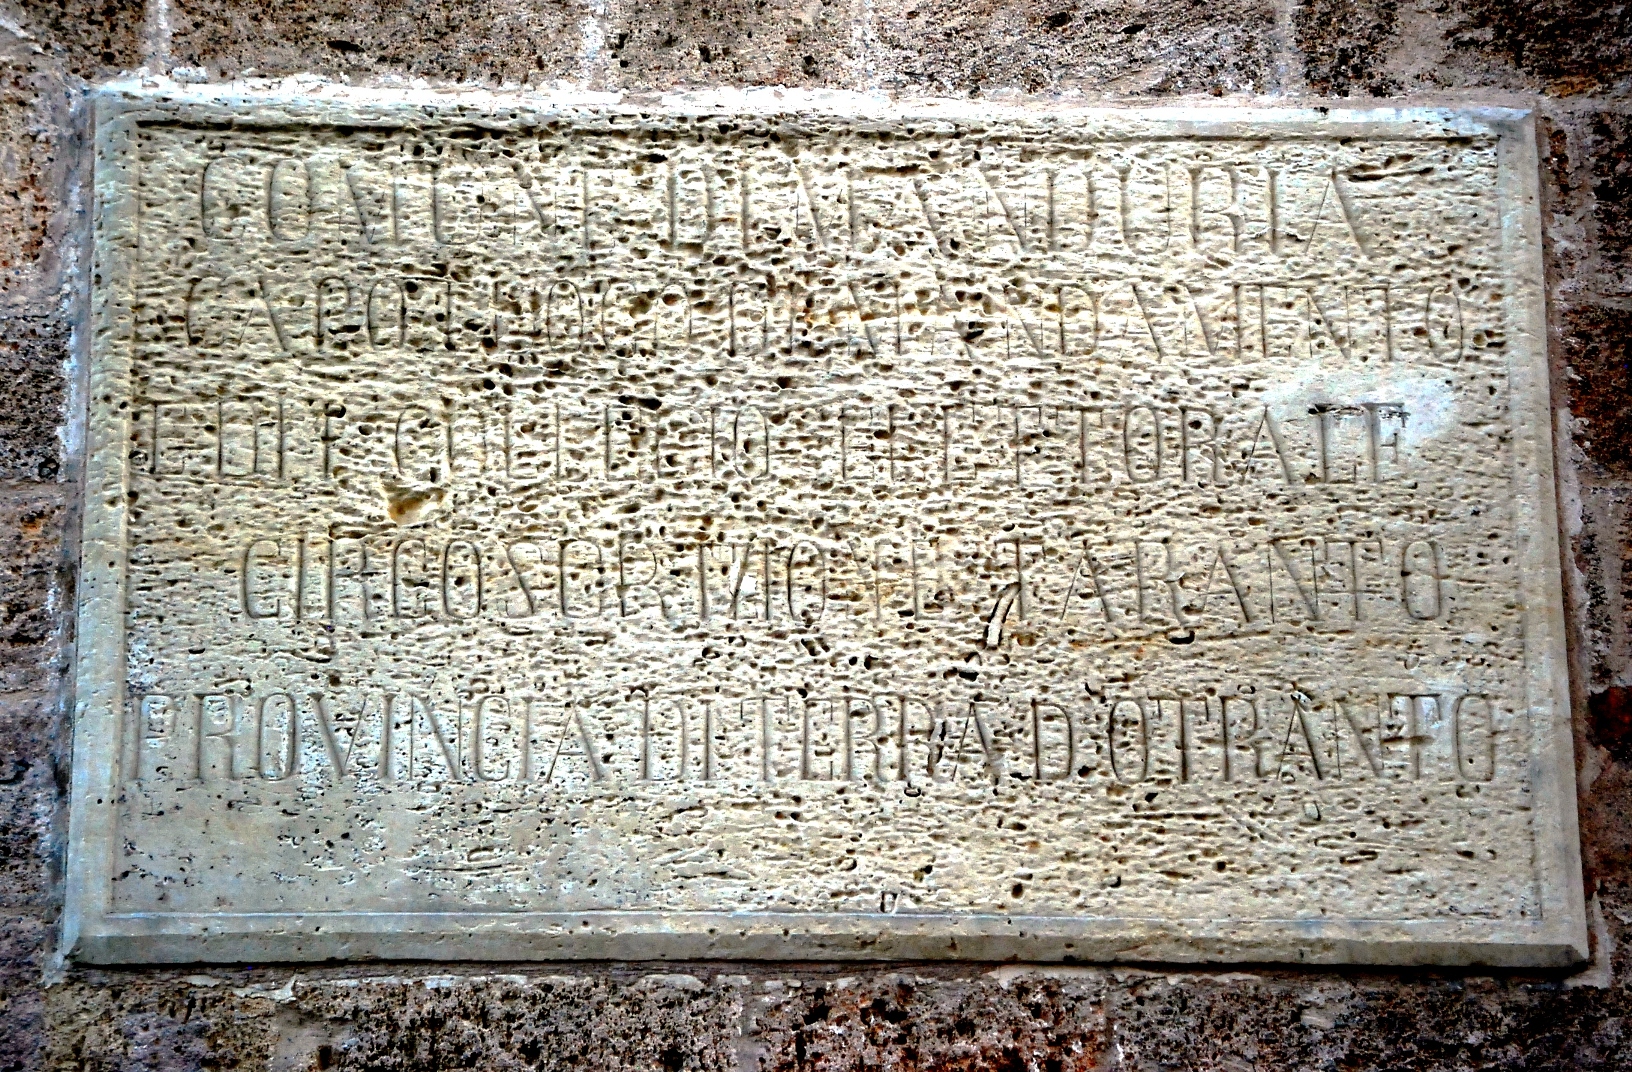 COMUNE DI MANDURIA
CAPOLUOGO DI MANDAMENTO
E DI COLLEGIO ELETTORALE
CIRCOSCRIZIONE TARANTO
PROVINCIA DI TERRA D'OTRANTO